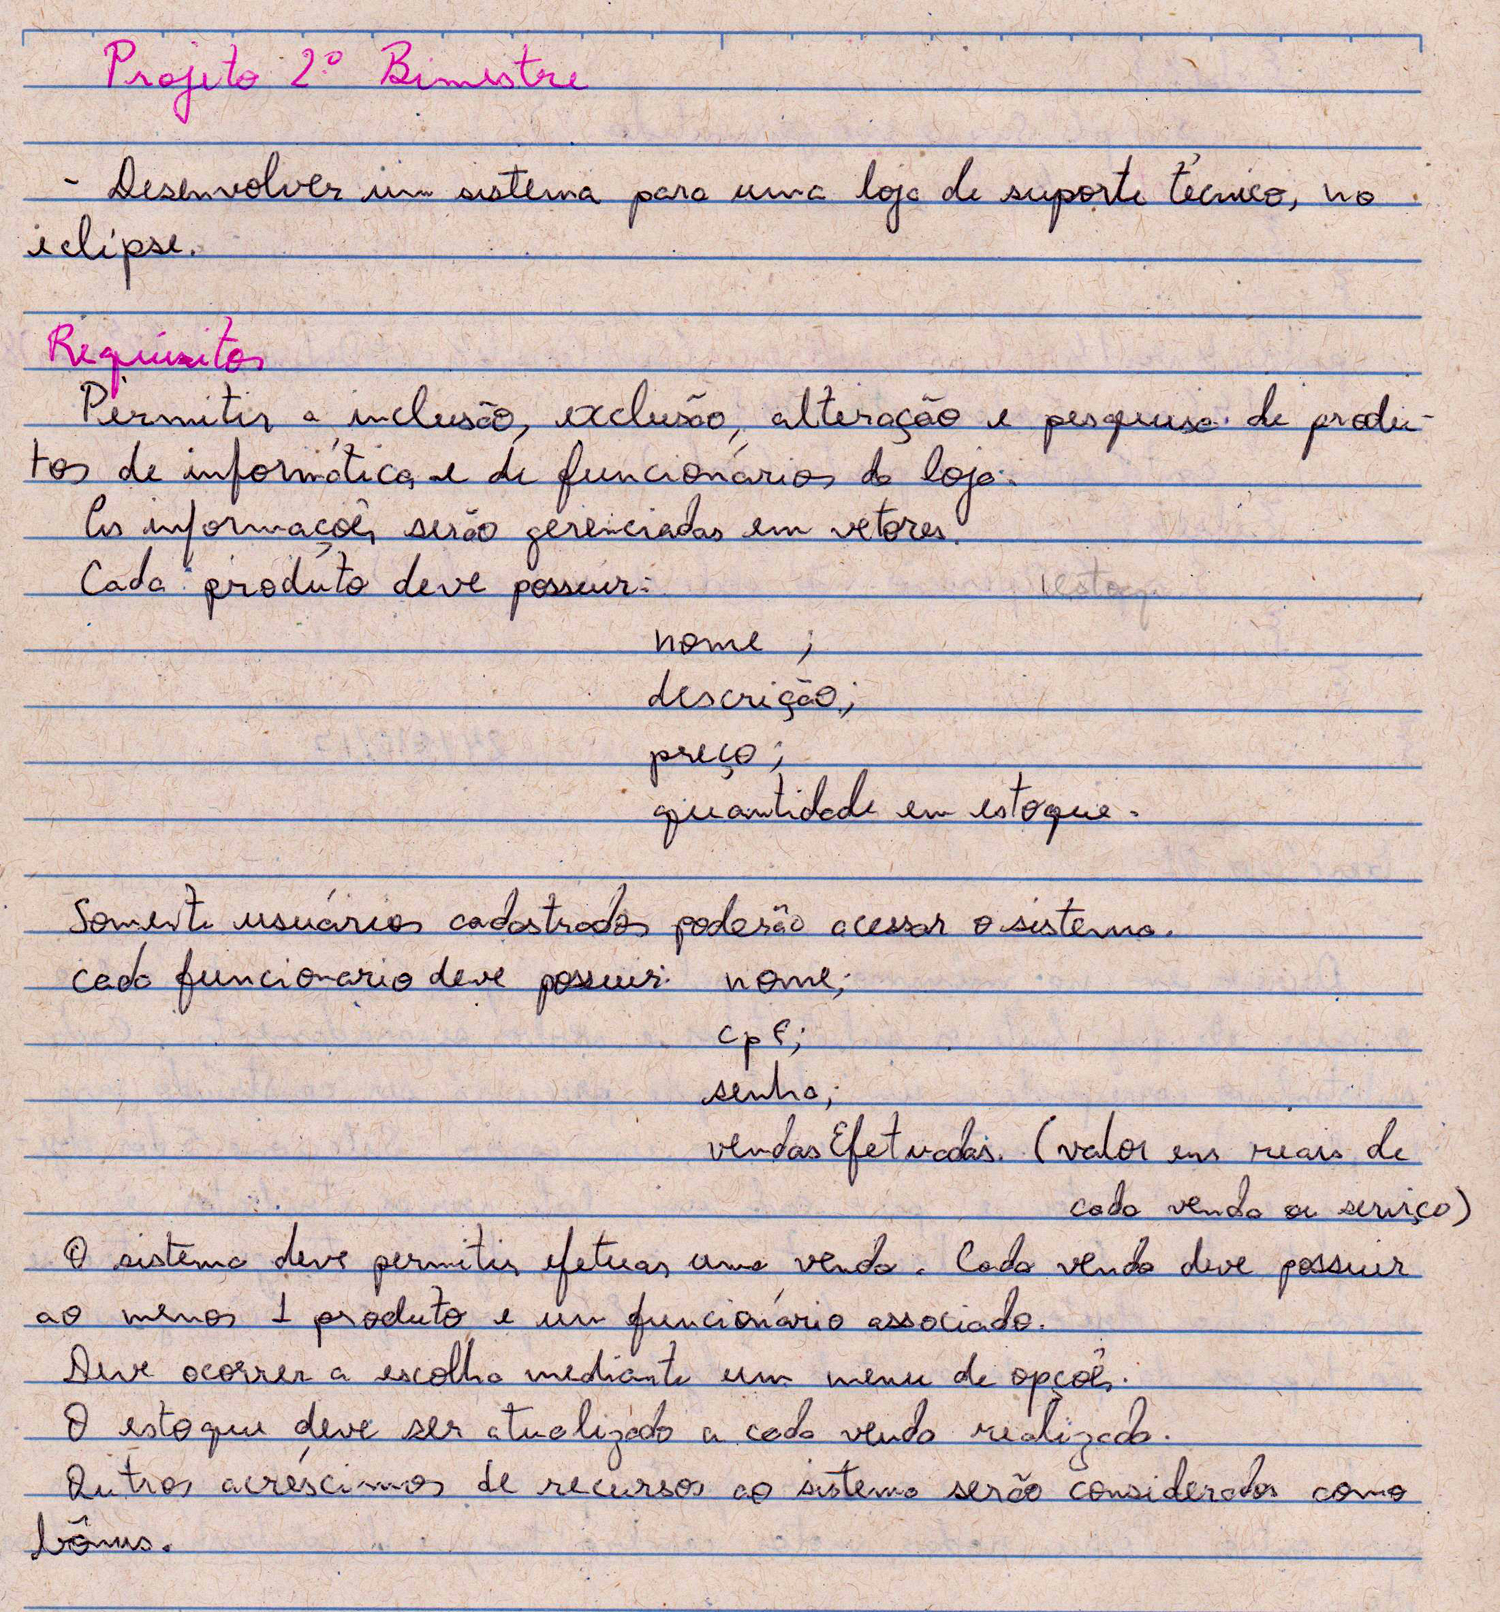 Projeto 2º Bimestre
- Desenvolver um sistema para uma loja de suporte técnico, no
eclipse.
Requisitos
Permitir a inclusão, exclusão, alteração e pesquisa de produ-
tos de informática e de funcionários da loja.
As informações serão gerenciadas em vetores.
Cada produto deve possuir:
nome ;
descrição;
preço;
quantidade em estoque.
Somente usuários cadastrados poderão acessar o sistema.
cada funcionario deve possuir: nome;
cpf;
senha;
vendasEfetuadas. (valor em reais de
cada venda ou serviço)
O sistema deve permitir efetuar uma venda. Cada venda deve possuir
ao menos 1 produto e um funcionário associado.
Deve ocorrer a escolha mediante um menu de opções.
O estoque deve ser atualizado a cada venda realizada.
Outros acréscimos de recursos ao sistema serão considerados como
bônus.